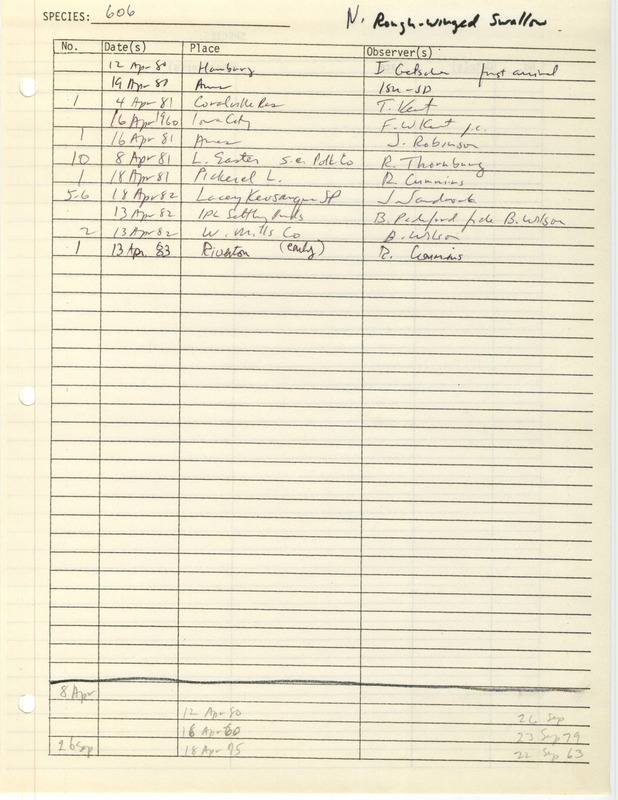 SPECIES: 606 N. Rough-winged Swallow
No. Date(s) Place Observer(s)
12 Apr 80 Hamburg first arrival
19 Apr 80 Ames ISU-JD
1 4 Apr 81 Coralville Res T. Kent
16 Apr 1960 Iowa City F.W Kent p.c.
1 16 Apr 81 Ames J. Robinson
10 8 Apr 81 L. Easter s.e. Polk Co R. Thornburg
1 18 Apr 81 Pickerel L. R. Cummins
5-6 18 Apr 82 Lacey Keosauqua SP J Sandrock
13 Apr 82 IPL Settling Ponds B. fide B. Wilson
2 13 Apr 82 W. Mills Co B. Wilson
1 13 Apr. 83 Riverton (early) R. Cummins
8 Apr
12 Apr 80 26 Sep
16 Apr 60 23 Sep 79
26 Sep 18 Apr 75 22 Sep 63